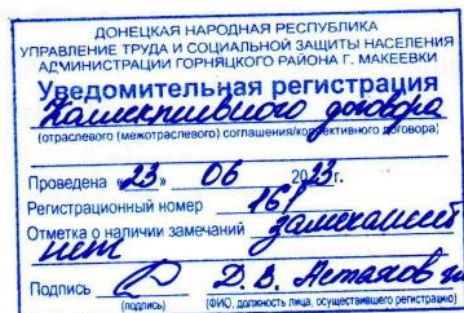 ДОНЕЦКАЯ НАРОДНАЯ РЕСПУБЛИКА
УПРАВЛЕНИЕ ТРУДА И СОЦИАЛЬНОЙ ЗАЩИТЫ НАСЕЛЕНИЯ
АДМИНИСТРАЦИИ ГОРНЯЦКОГО РАЙОНА Г. МАКЕЕВКИ
Уведомительная регистрация
Коллективного договора
(отраслевого (межотраслевого) соглашения/коллективного договора)
Проведена «23» 06 2023г.
Регистрационный номер 161
Отметка о наличии замечаний замечаний
нет
Подпись Д.В. Астахов
(подпись) (ФИО, должность лица, осуществившего регистрацию)